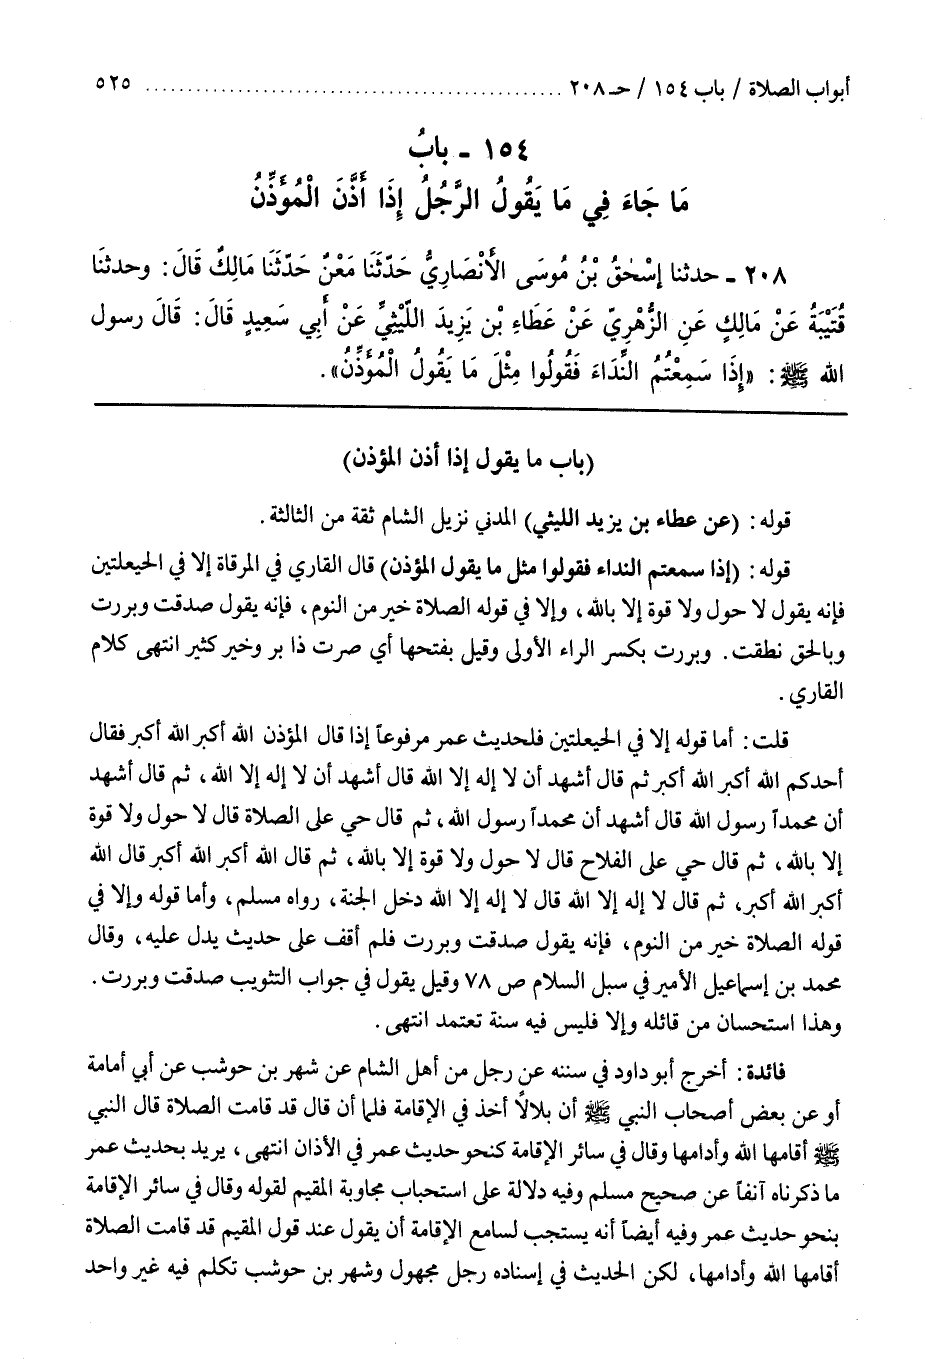 أبواب الصلاة / باب ١٥٤ / حـ ٢٠٨ .................................................. ٥٢٥
١٥٤ ـ بابُ
مَا جَاءَ فِي مَا يَقُولُ الرَّجُلُ إِذَا أَذَّنَ الْمُؤَذِّنُ
٢٠٨ ـ حدثنا إِسْحٰقُ بْنُ مُوسَى الأَنْصَارِيُّ حَدّثَنَا مَعْنٌ حَدّثَنَا مَالِكٌ قَالَ: وحدثنَا
قُتَيْبَةُ عَنْ مَالِكٍ عَنِ الزُّهْرِيّ عَنْ عَطَاءِ بْنِ يَزِيدَ اللّيْثِيِّ عَنْ أَبِي سَعِيدٍ قَالَ: قَالَ رسول
الله ﷺ: «إِذَا سَمِعْتُمُ النِّدَاءَ فَقُولُوا مِثْلَ مَا يَقُولُ الْمُؤَذِّنُ».
(باب ما يقول إذا أذن المؤذن)
قوله: (عن عطاء بن يزيد الليثي) المدني نزيل الشام ثقة من الثالثة.
قوله: (إذا سمعتم النداء فقولوا مثل ما يقول المؤذن) قال القاري في المرقاة إلا في الحيعلتين
فإنه يقول لا حول ولا قوة إلا بالله، وإلا في قوله الصلاة خير من النوم، فإنه يقول صدقت وبررت
وبالحق نطقت. وبررت بكسر الراء الأولى وقيل بفتحها أي صرت ذا بر وخير كثير انتهى كلام
القاري.
قلت: أما قوله إلا في الحيعلتين فلحديث عمر مرفوعاً إذا قال المؤذن الله أكبر الله أكبر فقال
أحدكم الله أكبر الله أكبر ثم قال أشهد أن لا إله إلا الله قال أشهد أن لا إله إلا الله، ثم قال أشهد
أن محمداً رسول الله قال أشهد أن محمداً رسول الله، ثم قال حي على الصلاة قال لا حول ولا قوة
إلا بالله، ثم قال حي على الفلاح قال لا حول ولا قوة إلا بالله، ثم قال الله أكبر الله أكبر قال الله
أكبر الله أكبر، ثم قال لا إله إلا الله قال لا إله إلا الله دخل الجنة، رواه مسلم، وأما قوله وإلا في
قوله الصلاة خير من النوم، فإنه يقول صدقت وبررت فلم أقف على حديث يدل عليه، وقال
محمد بن إسماعيل الأمير في سبل السلام ص ٧٨ وقيل يقول في جواب التثويب صدقت وبررت.
وهذا استحسان من قائله وإلا فليس فيه سنة تعتمد انتهى.
فائدة: أخرج أبو داود في سننه عن رجل من أهل الشام عن شهر بن حوشب عن أبي أمامة
أو عن بعض أصحاب النبي ﷺ أن بلالاً أخذ في الإقامة فلما أن قال قد قامت الصلاة قال النبي
ﷺ أقامها الله وأدامها وقال في سائر الإقامة كنحو حديث عمر في الأذان انتهى، يريد بحديث عمر
ما ذكرناه آنفاً عن صحيح مسلم وفيه دلالة على استحباب مجاوبة المقيم لقوله وقال في سائر الإقامة
بنحو حديث عمر وفيه أيضاً أنه يستجب لسامع الإقامة أن يقول عند قول المقيم قد قامت الصلاة
أقامها الله وأدامها، لكن الحديث في إسناده رجل مجهول وشهر بن حوشب تكلم فيه غير واحد